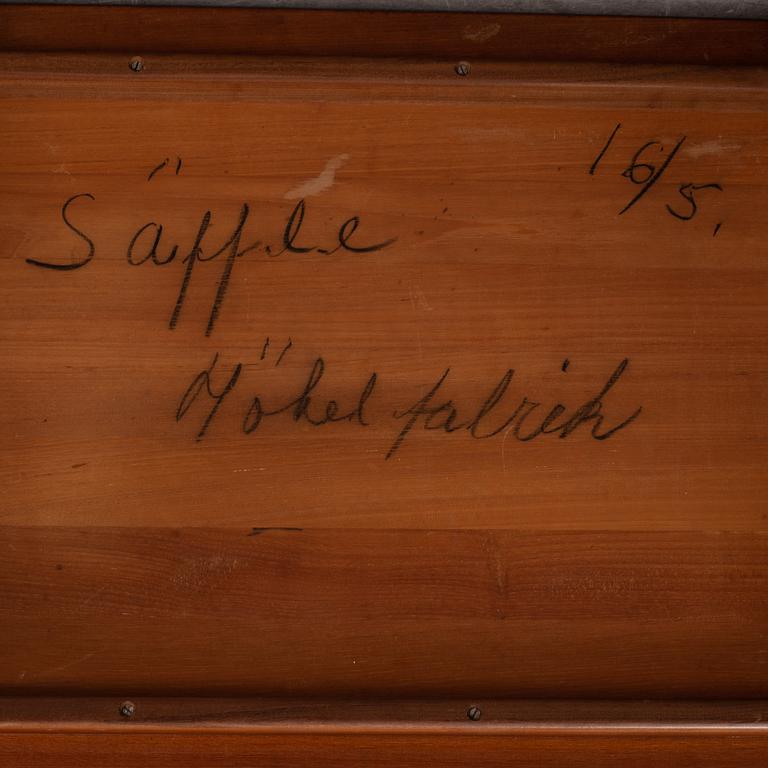 16/5.
Säffle
Möbelfabrik